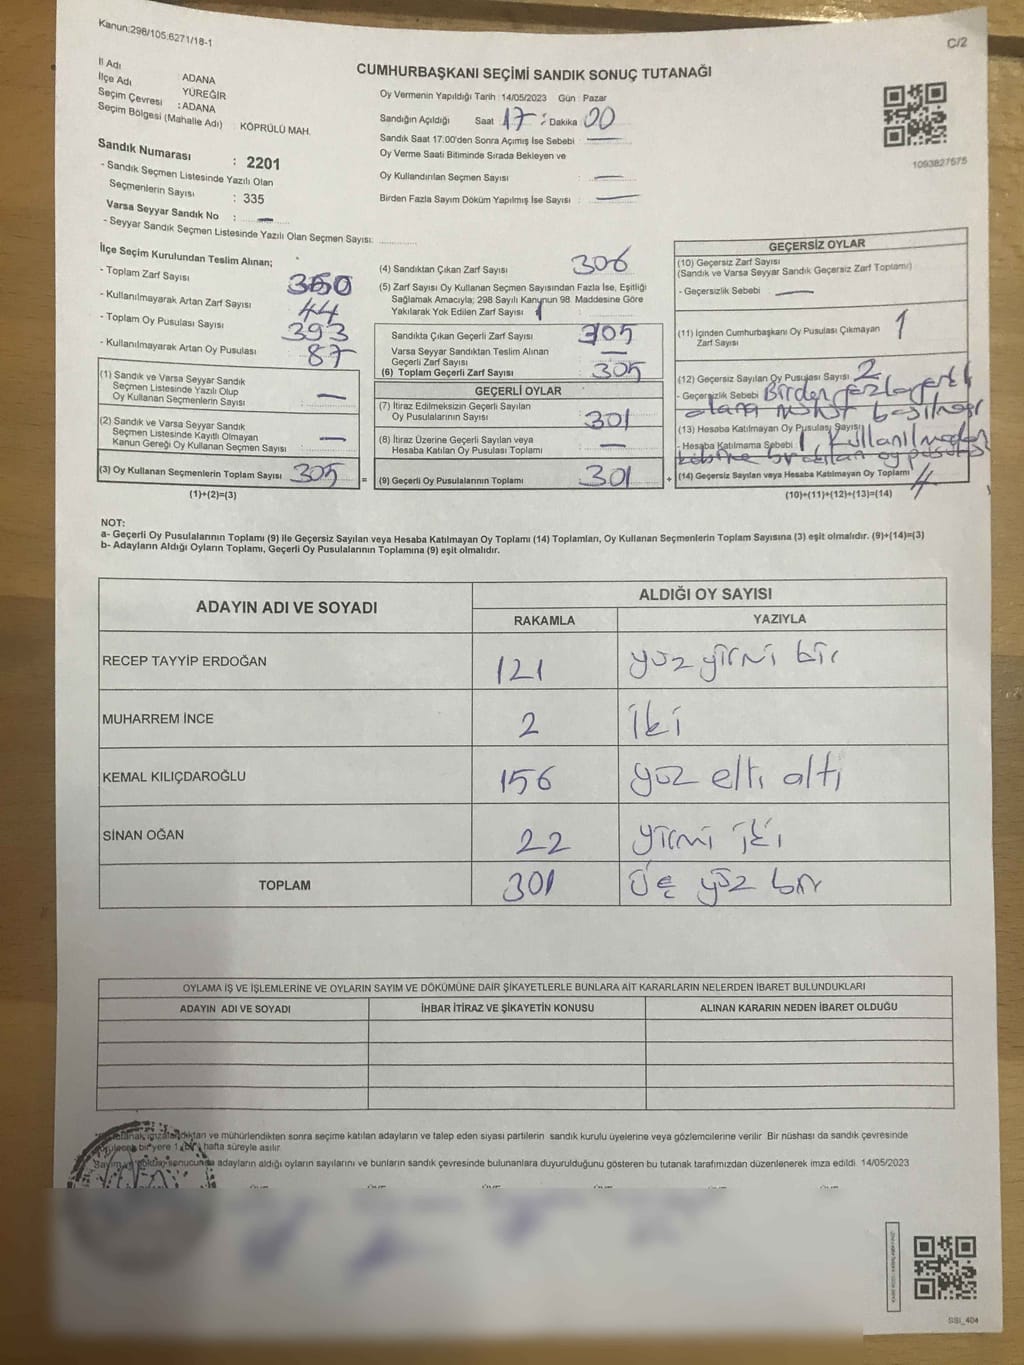 Kanun:298/105;6271/18-1
C/2
İl Adı : ADANA
İlçe Adı YÜREĞİR
Seçim Çevresi : ADANA
Seçim Bölgesi (Mahalle Adı) : KÖPRÜLÜ MAH.
Sandık Numarası : 2201
- Sandık Seçmen Listesinde Yazılı Olan
Seçmenlerin Sayısı : 335
Varsa Seyyar Sandık No : —
- Seyyar Sandık Seçmen Listesinde Yazılı Olan Seçmen Sayısı:
CUMHURBAŞKANI SEÇİMİ SANDIK SONUÇ TUTANAĞI
Oy Vermenin Yapıldığı Tarih : 14/05/2023 Gün : Pazar
Sandığın Açıldığı Saat 17 : Dakika 00
Sandık Saat 17:00'den Sonra Açımış İse Sebebi : —
Oy Verme Saati Bitiminde Sırada Bekleyen ve
Oy Kullandırılan Seçmen Sayısı : —
Birden Fazla Sayım Döküm Yapılmış İse Sayısı : —
1093827575
İlçe Seçim Kurulundan Teslim Alınan;
- Toplam Zarf Sayısı
- Kullanılmayarak Artan Zarf Sayısı 44
- Toplam Oy Pusulası Sayısı 393
- Kullanılmayarak Artan Oy Pusulası 87
(1) Sandık ve Varsa Seyyar
Seçmen Listesinde Yazılı Olup
Oy Kullanan Seçmenlerin Sayısı —
(2) Sandık ve Varsa Seyyar Sandık
Seçmen Listesinde Kayıtlı Olmayan
Kanun Gereği Oy Kullanan Seçmen Sayısı —
(3) Oy Kullanan Seçmenlerin Toplam Sayısı 305 =
(1)+(2)=(3)
(4) Sandıktan Çıkan Zarf Sayısı 306
(5) Zarf Sayısı Oy Kullanan Seçmen Sayısından Fazla İse, Eşitliği
Sağlamak Amacıyla; 298 Sayılı Kanunun 98. Maddesine Göre
Yakılarak Yok Edilen Zarf Sayısı : 1
Sandıkta Çıkan Geçerli Zarf Sayısı 305
Varsa Seyyar Sandıktan Teslim Alınan
Geçerli Zarf Sayısı —
(6) Toplam Geçerli Zarf Sayısı 305
GEÇERLİ OYLAR
(7) İtiraz Edilmeksizin Geçerli Sayılan
Oy Pusulalarının Sayısı 301
(8) İtiraz Üzerine Geçerli Sayılan veya
Hesaba Katılan Oy Pusulası Toplamı —
(9) Geçerli Oy Pusulalarının Toplamı 301 +
GEÇERSİZ OYLAR
(10) Geçersiz Zarf Sayısı
(Sandık ve Varsa Seyyar Sandık Geçersiz Zarf Toplamı)
- Geçersizlik Sebebi : —
(11) İçinden Cumhurbaşkanı Oy Pusulası Çıkmayan
Zarf Sayısı 1
(12) Geçersiz Sayılan Oy Pusulası Sayısı : 2
- Geçersizlik Sebebi Birden fazla
(13) Hesaba Katılmayan Oy Pusulası Sayısı
- Hesaba Katılmama Sebebi : 1, kullanılmadan
kabine bırakılan oy pusulası
(14) Geçersiz Sayılan veya Hesaba Katılmayan Oy Toplamı 4
(10)+(11)+(12)+(13)=(14)
NOT:
a- Geçerli Oy Pusulalarının Toplamı (9) ile Geçersiz Sayılan veya Hesaba Katılmayan Oy Toplamı (14) Toplamları, Oy Kullanan Seçmenlerin Toplam Sayısına (3) eşit olmalıdır. (9)+(14)=(3)
b- Adayların Aldığı Oyların Toplamı, Geçerli Oy Pusulalarının Toplamına (9) eşit olmalıdır.
ADAYIN ADI VE SOYADI
ALDIĞI OY SAYISI
RAKAMLA YAZIYLA
RECEP TAYYİP ERDOĞAN 121 yüz yirmi bir
MUHARREM İNCE 2 iki
KEMAL KILIÇDAROĞLU 156 yüz elli altı
SİNAN OĞAN 22 yirmi iki
TOPLAM 301 Üç yüz bir
OYLAMA İŞ VE İŞLEMLERİNE VE OYLARIN SAYIM VE DÖKÜMÜNE DAİR ŞİKAYETLERLE BUNLARA AİT KARARLARIN NELERDEN İBARET BULUNDUKLARI
ADAYIN ADI VE SOYADI İHBAR İTİRAZ VE ŞİKAYETİN KONUSU ALINAN KARARIN NEDEN İBARET OLDUĞU
ve mühürlendikten sonra seçime katılan adayların ve talep eden siyasi partilerin sandık kurulu üyelerine veya gözlemcilerine verilir. Bir nüshası da sandık çevresinde
bir yere 1 hafta süreyle asılır.
Sayım ve döküm sonucunda adayların aldığı oyların sayılarını ve bunların sandık çevresinde bulunanlara duyurulduğunu gösteren bu tutanak tarafımızdan düzenlenerek imza edildi. 14/05/2023
SSI_404